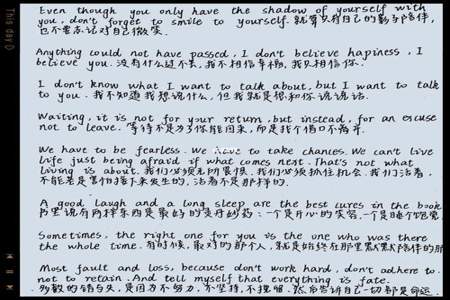 This day
Even though you only have the shadow of yourself with
you, don't forget to smile to yourself. 就算只有自己的影子陪伴,
也不要忘记对自己微笑.
Anything could not have passed, I don't believe hapiness, I
believe you. 没有什么过不去, 我不相信幸福, 我只相信你.
I don't know what I want to talk about, but I want to talk
to you. 我不知道我想说什么, 但我就是想和你说说话.
Waiting, it is not for your return, but instead, for an excuse
not to leave. 等待不是为了你能回来, 而是找个借口不离开.
We have to be fearless. We have to take chances. We can't live
life just being afraid if what comes next. That's not what
living is about. 我们必须无所畏惧, 我们必须抓住机会, 我们活着,
不能老是害怕接下来发生的, 活着不是那样的.
A good laugh and a long sleep are the best cures in the book
书里说有两样东西是最好的灵丹妙药: 一个是开心的笑容, 一个是睡个饱觉
Sometimes, the right one for you is the one who was there
the whole time. 有时候, 最对的那个人, 就是始终在那里默默陪伴的那
Most fault and loss, because don't work hard, don't adhere to.
not to retain. And tell myself that everything is fate.
多数的错与失, 是因为不努力, 不坚持, 不挽留, 然后告诉自己一切都是命运.